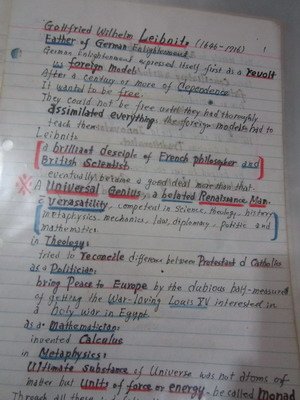 Gottfried Wilhelm Leibnitz (1646-1716)
1
Father of German Enlightenment
German Enlightenment expressed itself first as a revolt
vs foreign Models
After a century or more of Dependence
It wanted to be free.
They could not be free until they had thoroughly
assimilated everything the foreign models had to
teach them.
Leibnitz
a brilliant desciple of French philosopher and
British Scientist,
eventually became a good deal more than that.
A Universal Genius, a belated Renaissance Man.
verasatility, competent in science, theology, history
metaphysics, mechanics, law, diplomacy, politic and
mathematics.
in Theology:
tried to reconcile difference between Protestant & Catholics
as a Politician:
bring Peace to Europe by the dubious half-measure
of getting the War-loving Louis XIV interested in
a holy war in Egypt.
as a Mathematician:
invented Calculus
in Metaphysics:
Ultimate substance of Universe was not atoms of
matter but units of force or energy he called Monad
Through all these